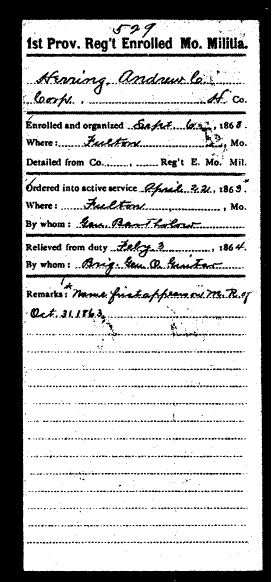 529
1st Prov. Reg't Enrolled Mo. Militia.
Herring, Andrew C.
Corp., H Co.
Enrolled and organized Sept 6, 1863
Where: Fulton, Mo.
Detailed from Co. , Reg't E. Mo. Mil.
Ordered into active service April 22, 1863
Where: Fulton, Mo.
By whom: Gen. Bartholow
Relieved from duty Feby 3, 1864.
By whom: Brig. Gen. O. Guitar
Remarks: Name first appears on M. R. of
Oct. 31, 1863,